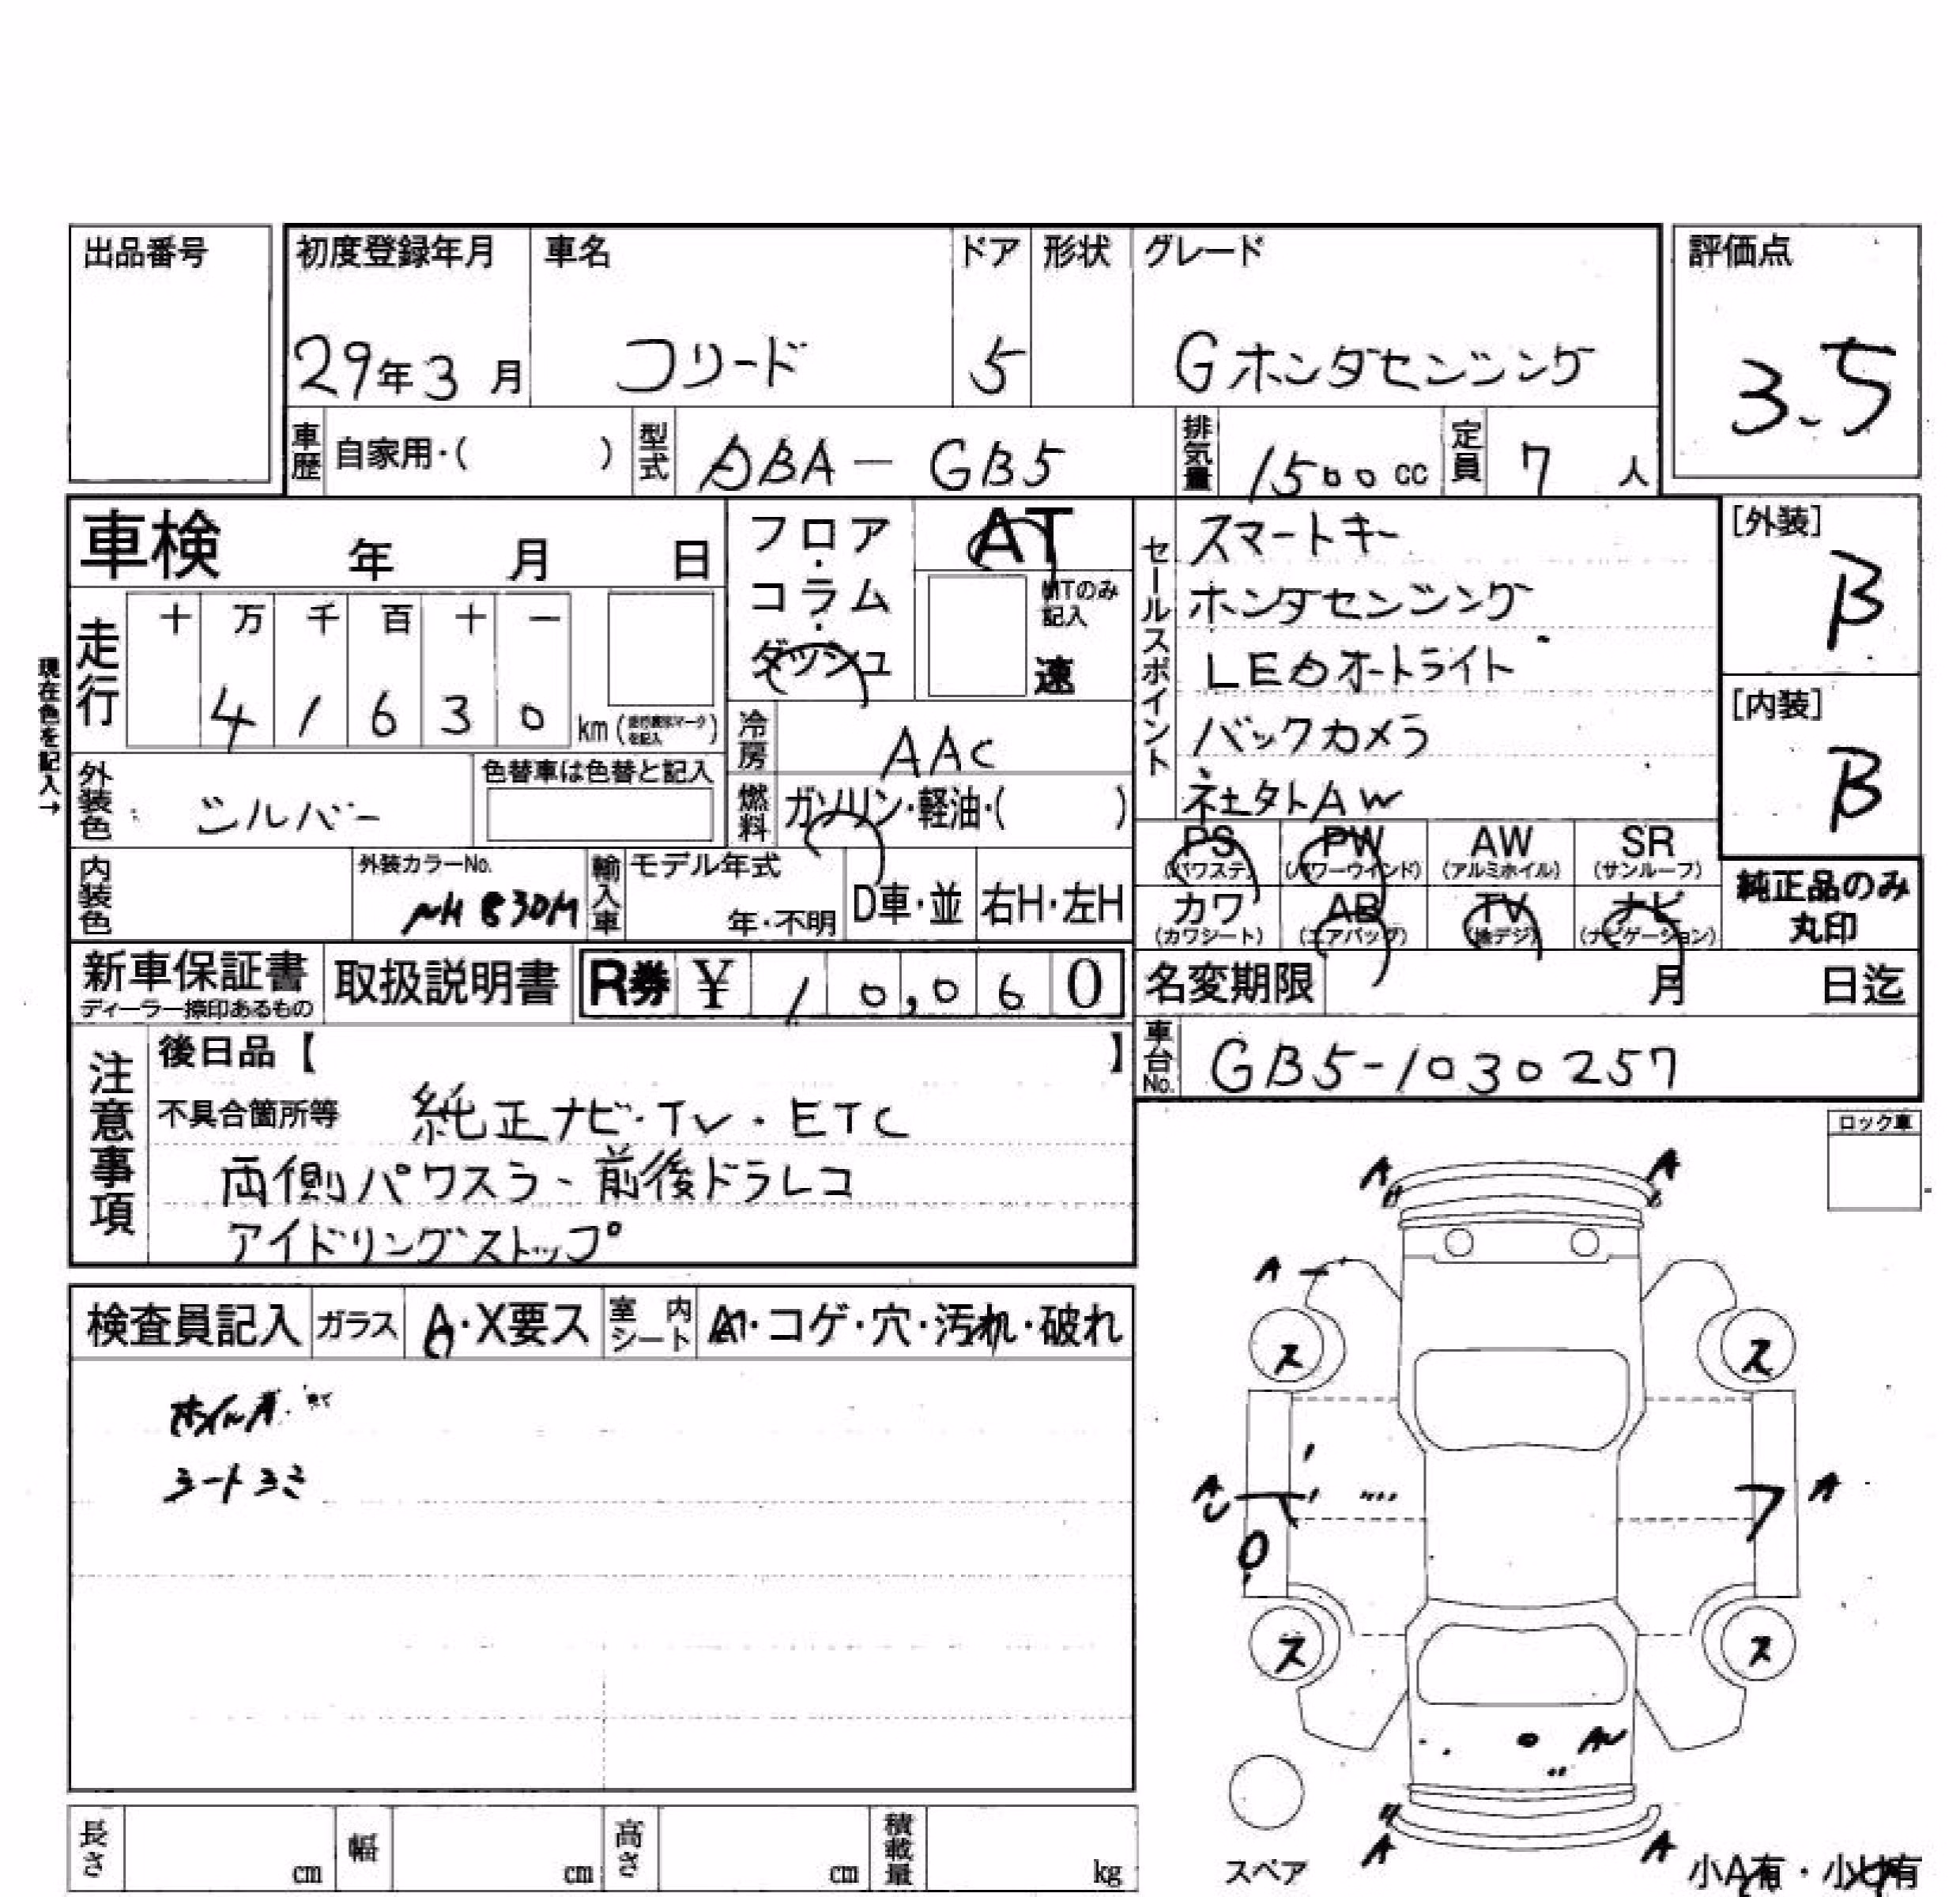 出品番号
初度登録年月 車名 ドア 形状 グレード 評価点
29年3月 フリード 5 Gホンダセンシング 3.5
車歴 自家用・( ) 型式 DBA-GB5 排気量 1500cc 定員 7人
車検 年 月 日
フロア・コラム・ダッシュ
AT
MTのみ記入
速
セールスポイント
スマートキー
ホンダセンシング
LEDオートライト
バックカメラ
社外AW
[外装] B
[内装] B
現在色を記入→
走行 十 万 千 百 十 一
4 1 6 3 0 km
冷房 AAC
外装色 シルバー 色替車は色替と記入
燃料 ガソリン・軽油・( )
PS PW AW SR
(パワステ) (パワーウインド) (アルミホイル) (サンルーフ)
カワ AB TV ナビ
(カワシート) (エアバッグ) (地デジ) (ナビゲーション)
純正品のみ
丸印
内装色 外装カラーNo. NH830M 輸入車 モデル年式 年・不明 D車・並 右H・左H
新車保証書 取扱説明書 R券 ¥ 10,060 名変期限 月 日迄
ディーラー捺印あるもの
車台No. GB5-1030257
注意事項
後日品【 】
不具合箇所等 純正ナビ・TV・ETC
両側パワスラ・前後ドラレコ
アイドリングストップ
ロック車
検査員記入 ガラス A・X要ス 室内シート ・コゲ・穴・汚れ・破れ
ホイルA
A A
A
ス ス
A
ス ス
A A
スペア
小A有・小U有
長さ cm 幅 cm 高さ cm 積載量 kg